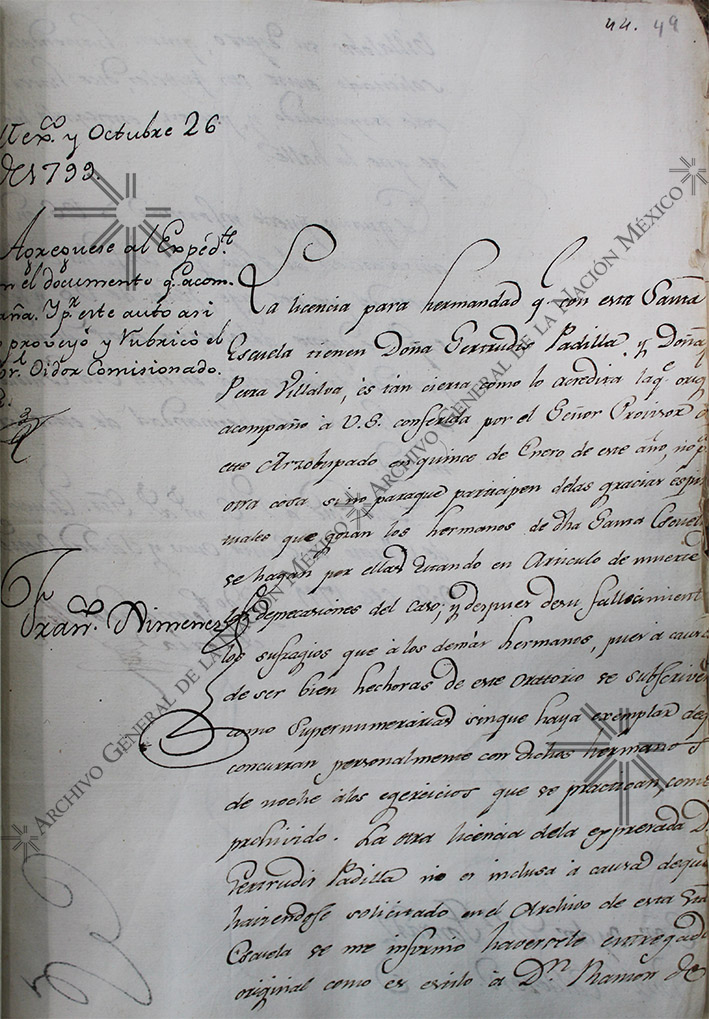 44. 49
Mex.co y Octubre 26
de 1799.
Agreguese al Exped.te
en el documento q.e acom
paña. Y p.r este auto asi
lo proveyó y rubricó el
Sr. Oidor Comisionado.
Fran.co Ximenez
La licencia para hermandad q.e con esta Santa
Escuela tienen Doña Gertrudis Padilla y Doña
Petra Villalva, es tan cierta como lo acredita la q.e orig
acompaño á V.S. conferida por el Señor Provisor
este Arzobispado en quince de Enero de este año, no p.a
otra cosa sino paraque participen delas gracias espiri
tuales que gozan los hermanos de dha Santa Escuela
se hagan por ellas estando en Articulo de muerte
las deprecasiones del caso; y despues desu fallecimient
los sufragios que á los demas hermanos, pues á causa
de ser bien hechoras de este Oratorio se subscriven
como Supernumerarias sinque haya exemplar deq
concurran personalmente con dichos hermanos
de noche álos egercicios que se practican, como
prohivido. La otra licencia dela expresada D.
Gertrudis Padilla no es inclusa á causa deque
haviendose solicitado en el Archivo de esta Sta
Escuela se me informo haversele entregado
original como es estilo á D.n Ramon de
ARCHIVO GENERAL DE LA NACIÓN MÉXICO
ARCHIVO GENERAL DE LA NACIÓN MÉXICO